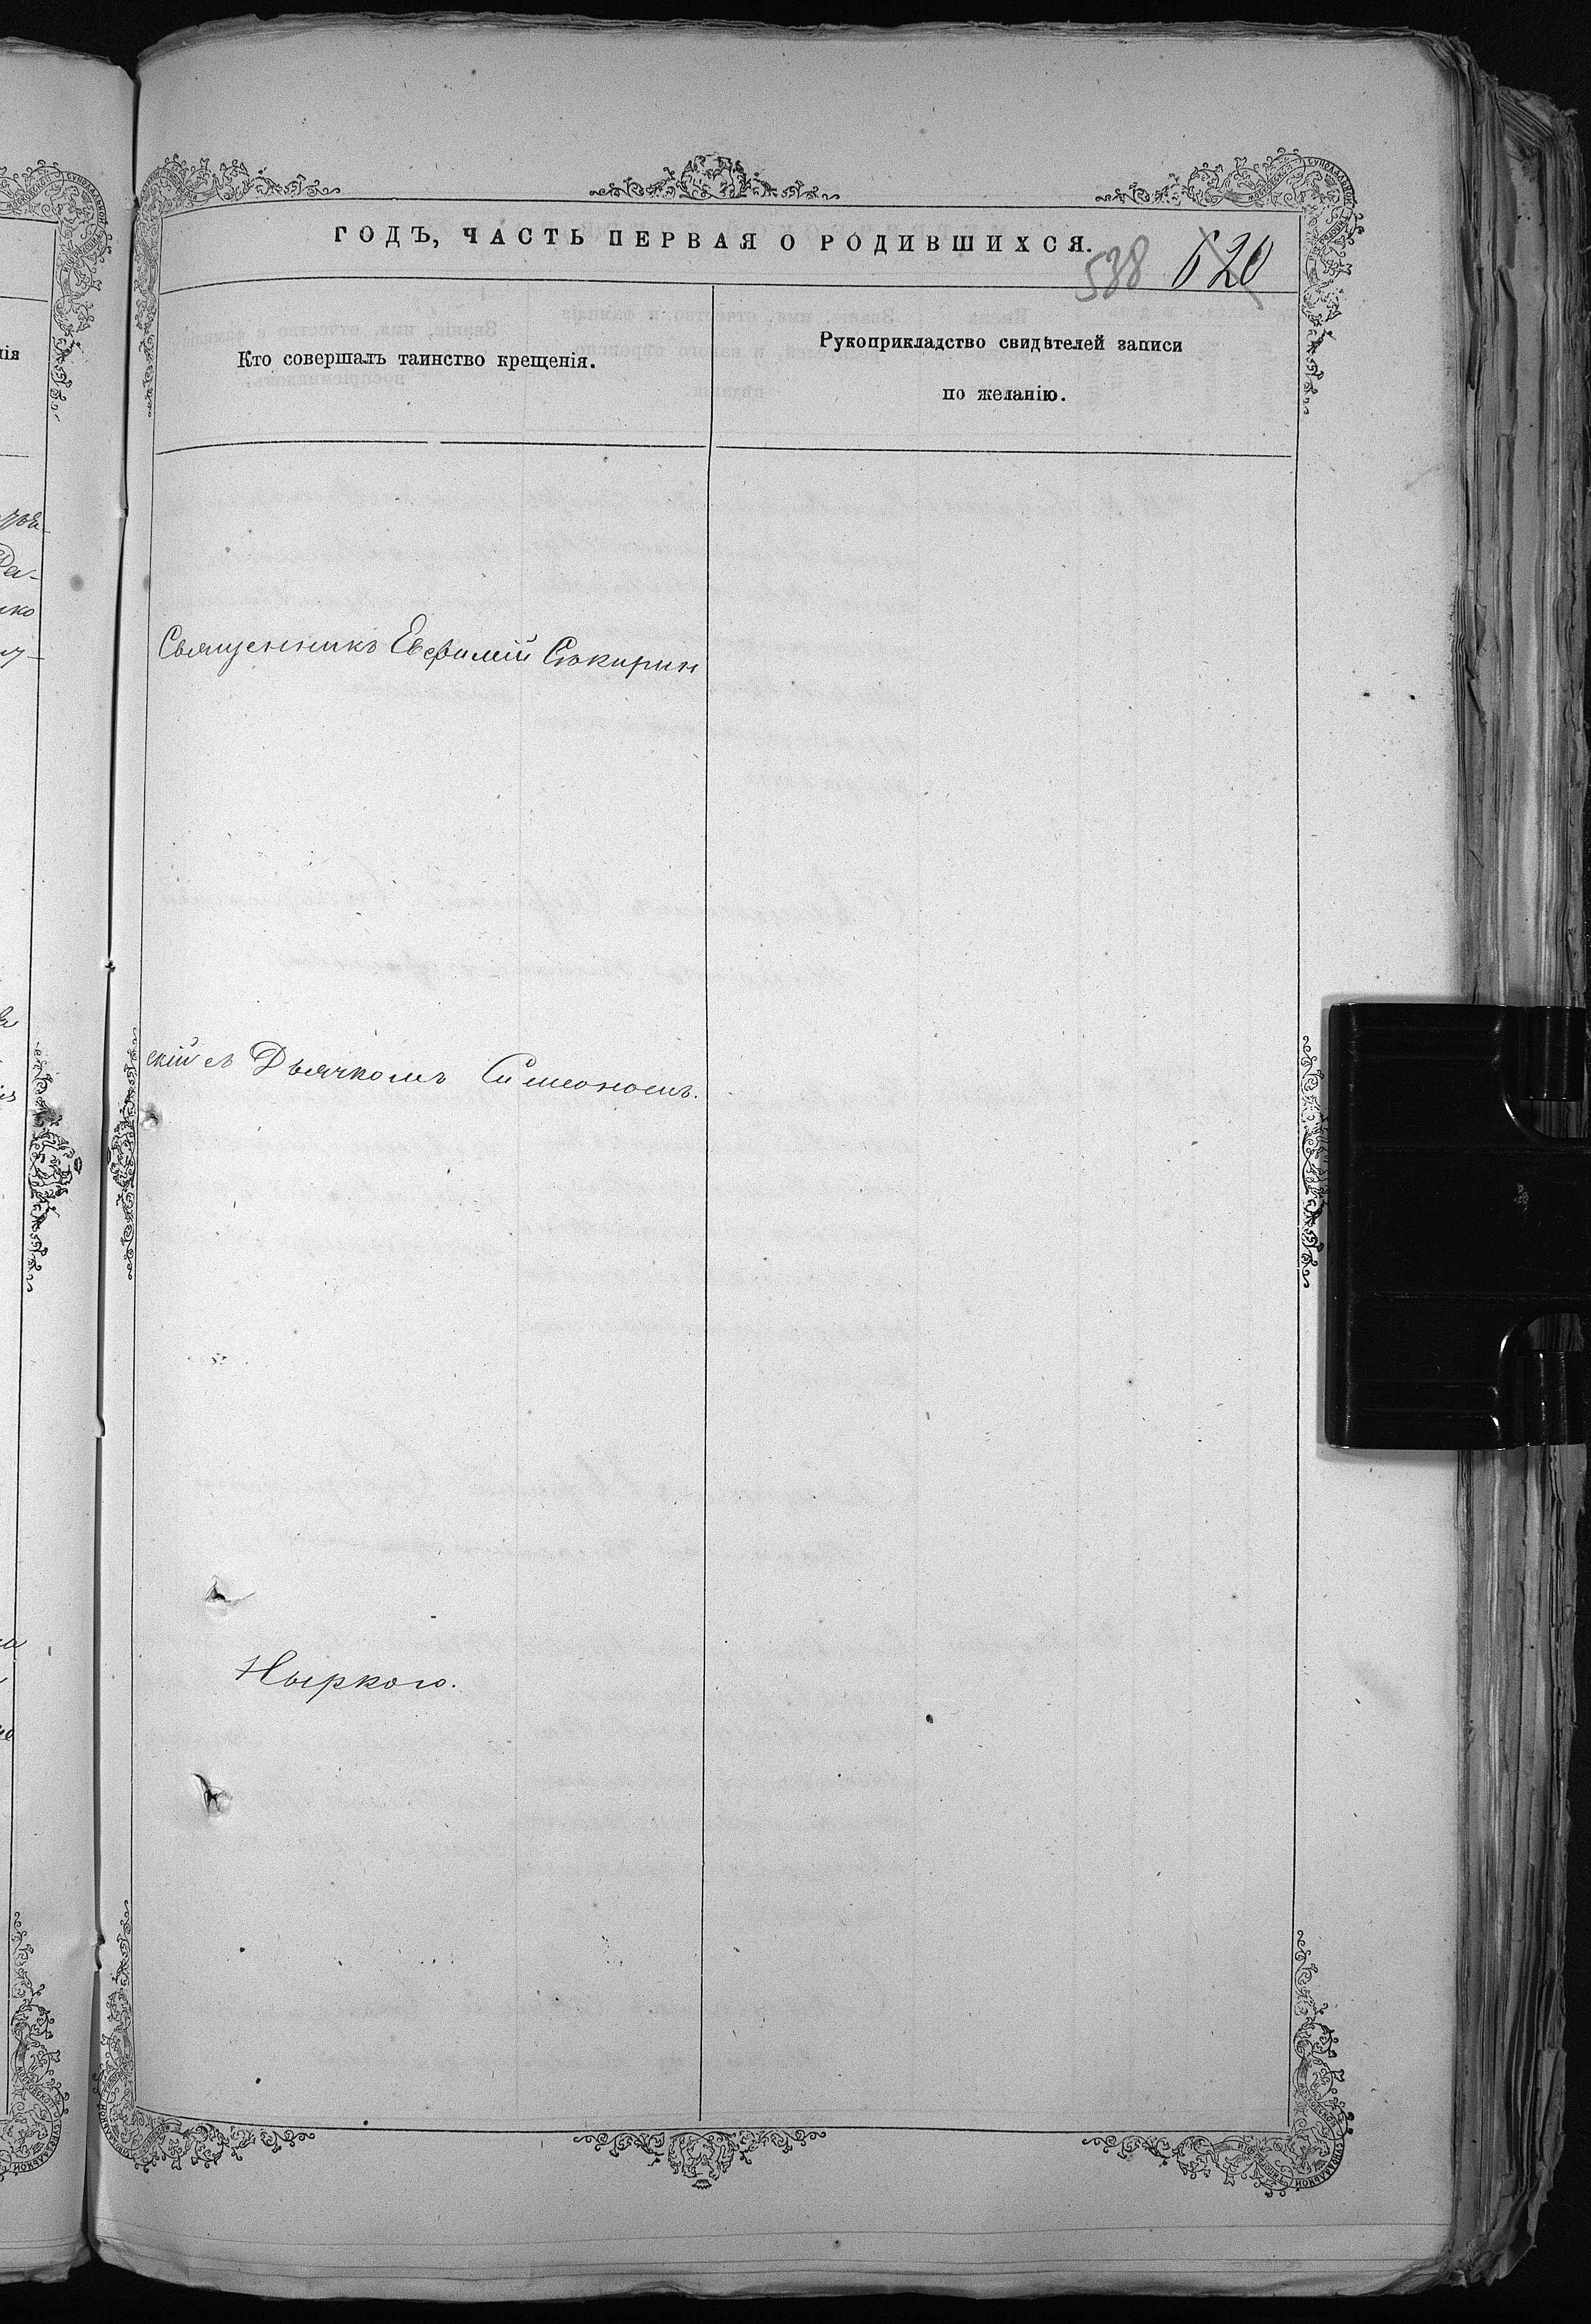 ГОДЪ, ЧАСТЬ ПЕРВАЯ О РОДИВШИХСЯ.
538 620
Кто совершалъ таинство крещенія.
Рукоприкладство свидѣтелей записи
по желанію.
Священникъ Евфимій Сѣкирин
скій съ Дьячкомъ Симеономъ.
Ныркою.